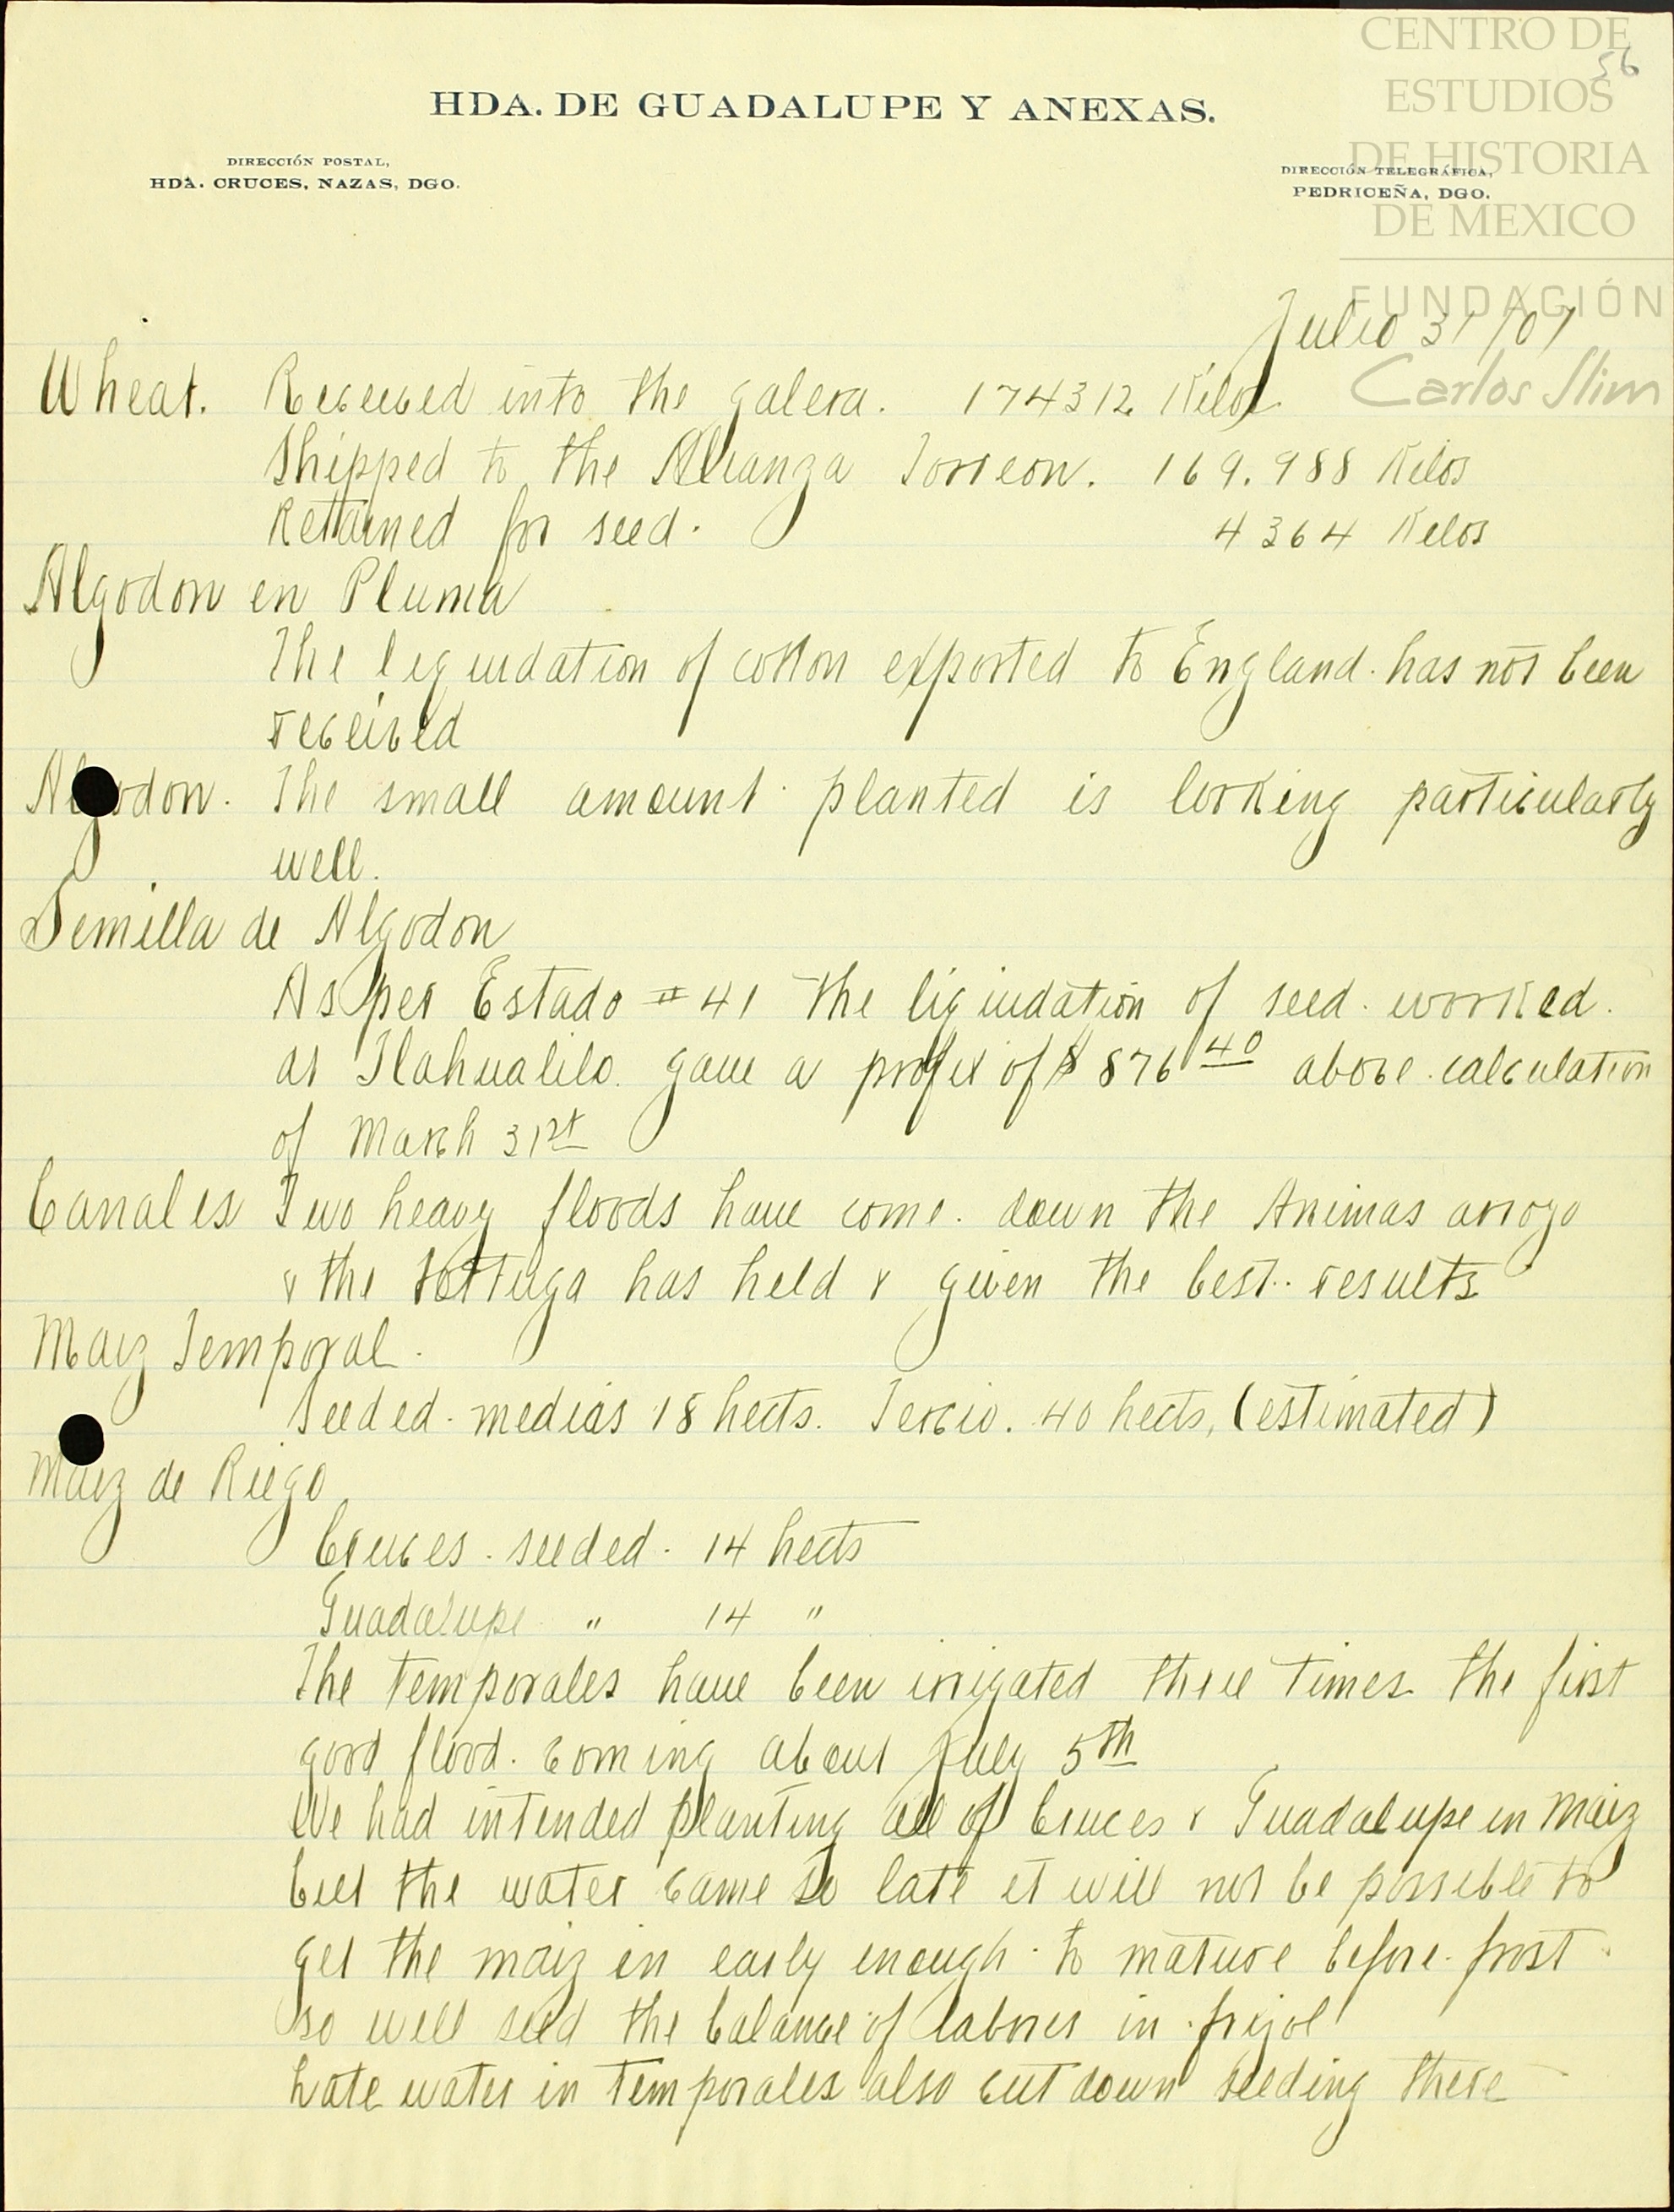 CENTRO DE
ESTUDIOS
DE HISTORIA
DE MEXICO
FUNDACIÓN
Carlos Slim
56
HDA. DE GUADALUPE Y ANEXAS.
DIRECCIÓN POSTAL,
HDA. CRUCES, NAZAS, DGO.
DIRECCIÓN TELEGRÁFICA,
PEDRICEÑA, DGO.
Julio 31/07
Wheat. Received into the galera. 174312 Kilos
Shipped to the Alianza Torreon. 169.988 Kilos
Retained for seed. 4364 Kilos
Algodon en Pluma
The liquidation of cotton exported to England has not been
received
Algodon. The small amount planted is looking particularly
well.
Semilla de Algodon
As per Estado # 41 the liquidation of seed worked
at Tlahualilo gave a profit of $ 876 40 above calculation
of March 31st
Canales Two heavy floods have come down the Animas arroyo
& the Tortuga has held & given the best results
Maiz Temporal.
Seeded medias 18 hects. Tercio. 40 hects, (estimated)
Maiz de Riego
Cruces seeded 14 hects
Guadalupe " 14 "
The temporales have been irrigated three times the first
good flood coming about July 5th
We had intended planting all of Cruces & Guadalupe in maiz
but the water came so late it will not be possible to
get the maiz in early enough to mature before frost
so will seed the balance of labores in frijol
Late water in temporales also cut down seeding there